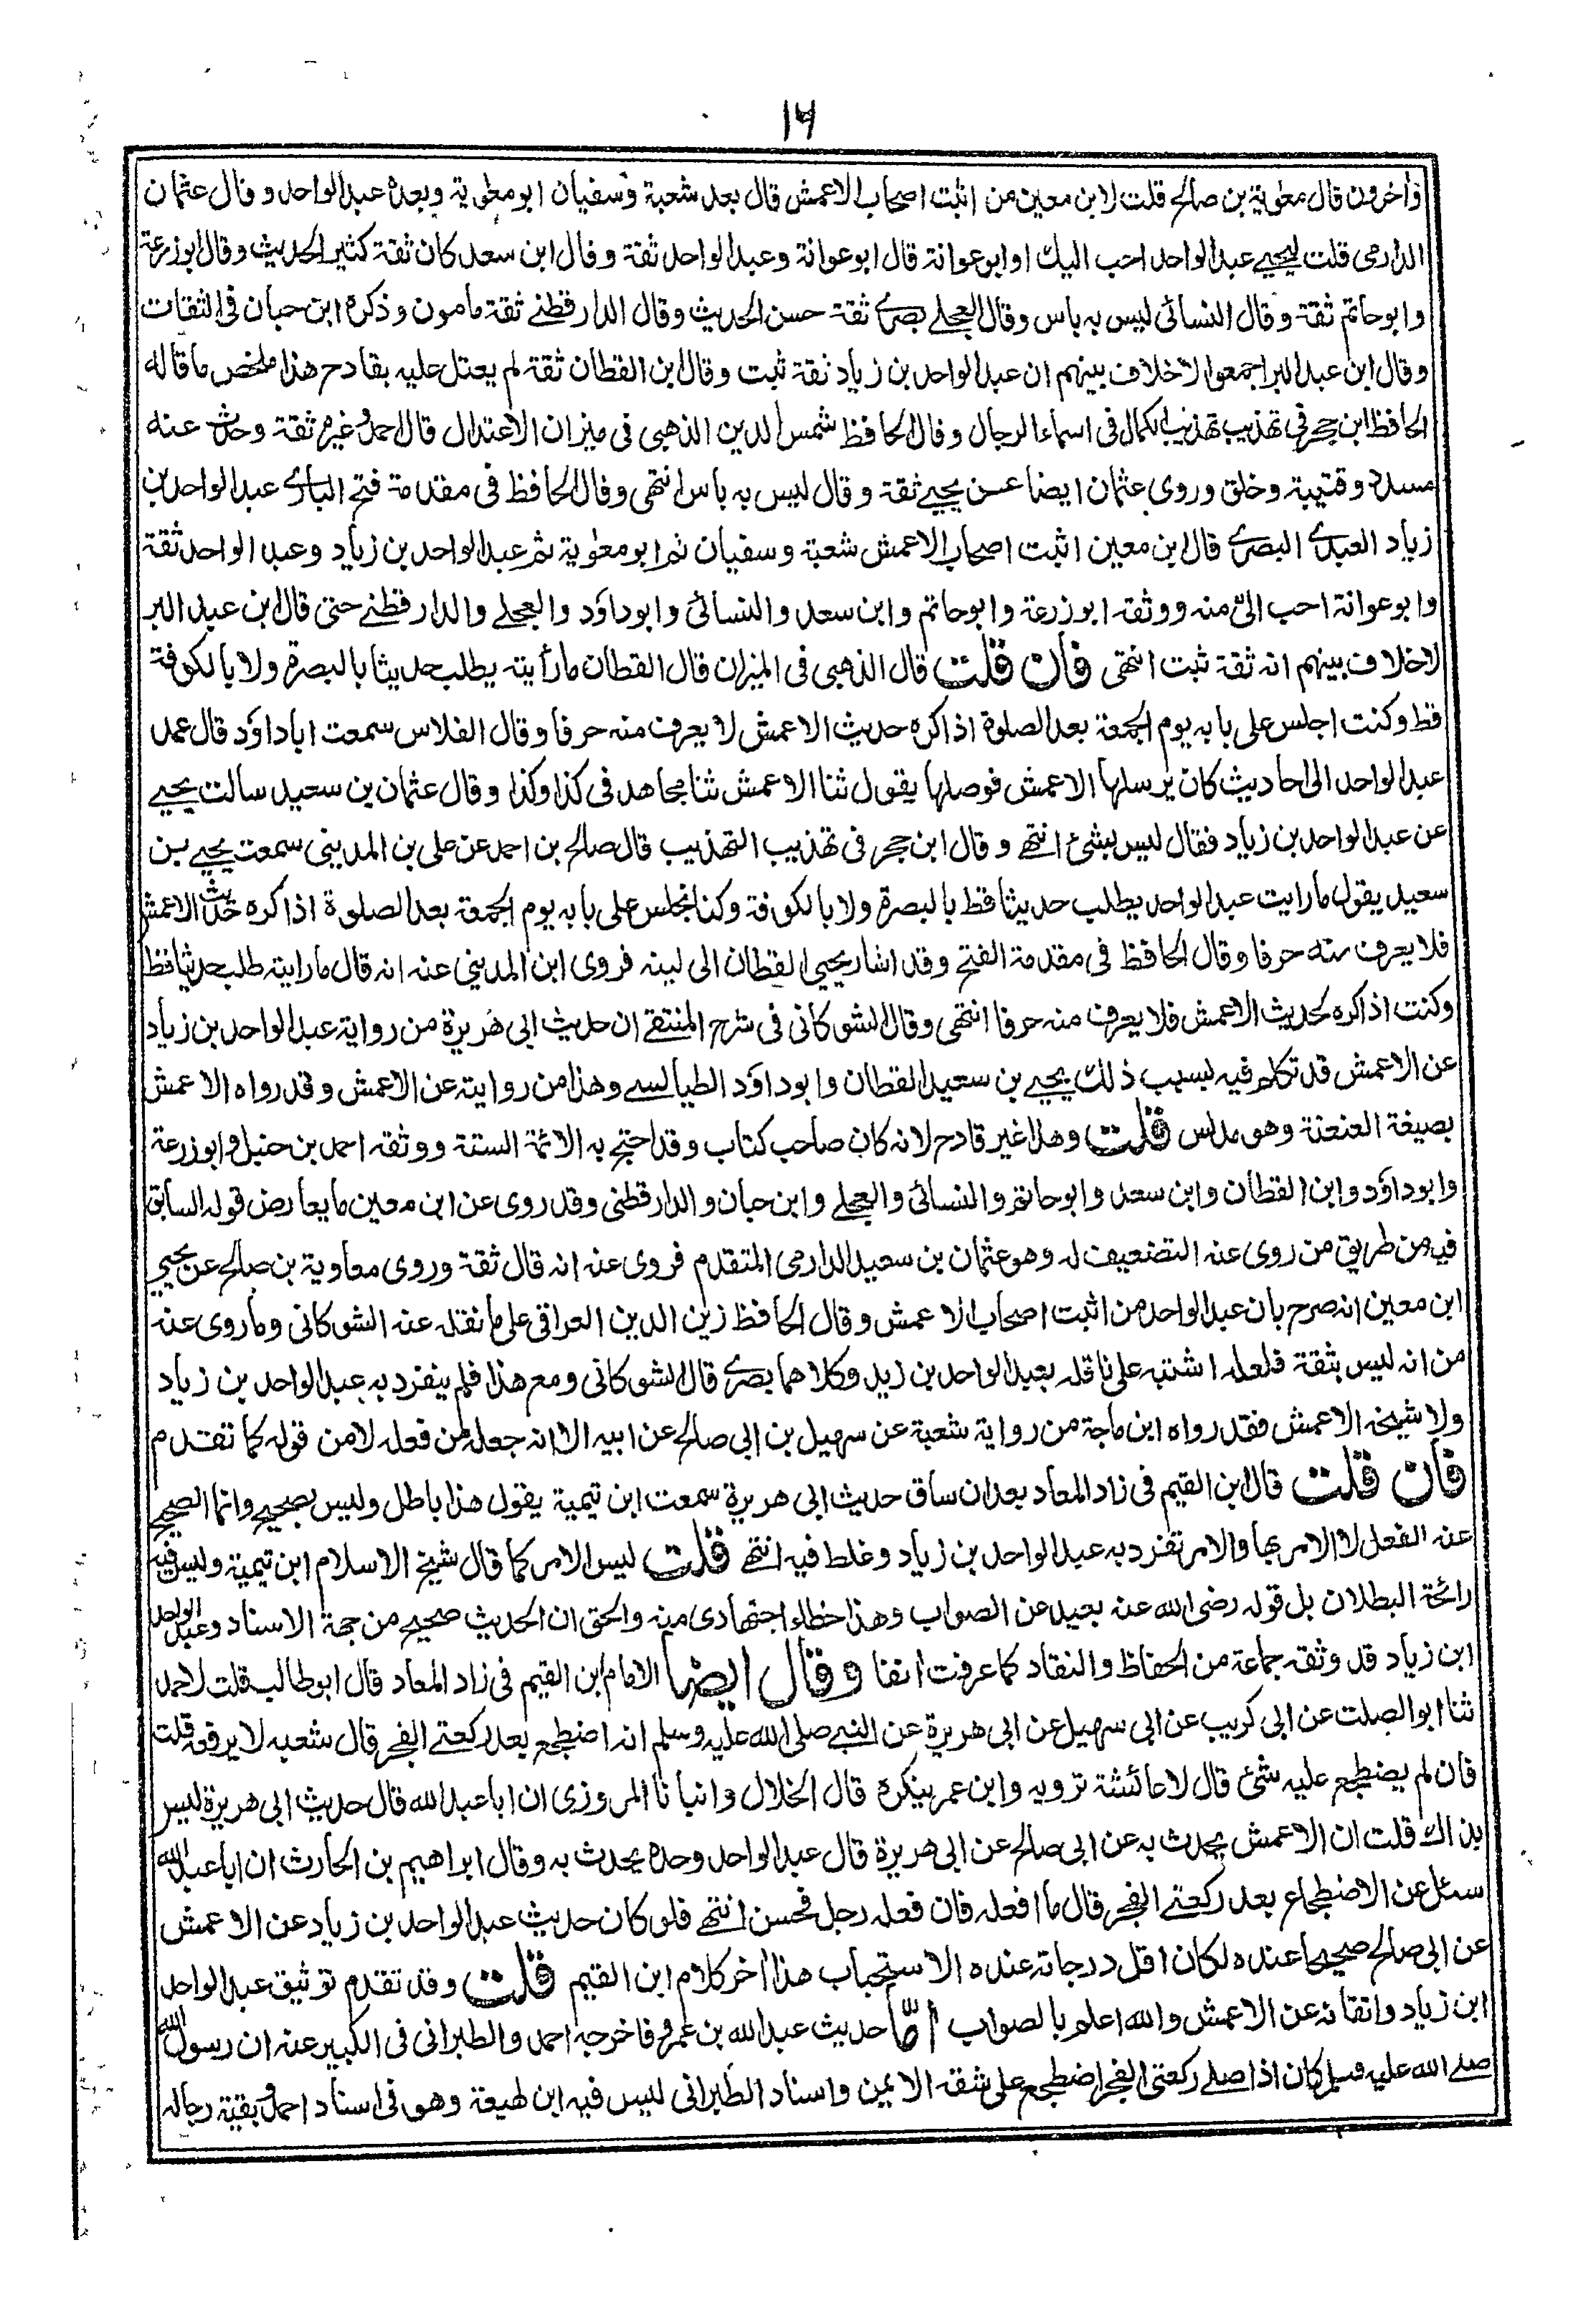 ١٦
واخرون قال معوية بن صالح قلت لابن معين من اثبت اصحاب الاعمش قال بعد شعبة وسفيان ابو معوية وبعده عبد الواحد وقال عثمان
الدارمى قلت ليحيى عبد الواحد احب اليك او ابو عوانة قال ابو عوانة وعبد الواحد ثقة وقال ابن سعد كان ثقة كثير الحديث وقال ابو زرعة
وابو حاتم ثقة وقال النسائى ليس به باس وقال العجلى بصرى ثقة حسن الحديث وقال الدارقطنى ثقة مامون وذكره ابن حبان فى الثقات
وقال ابن عبد البر اجمعوا لاخلاف بينهم ان عبد الواحد بن زياد ثقة ثبت وقال ابن القطان ثقة لم يعتل عليه بقادح هذا ملخص ما قاله
الحافظ ابن حجر فى تهذيب تهذيب الكمال فى اسماء الرجال وقال الحافظ شمس الدين الذهبى فى ميزان الاعتدال قال احمد وغيره ثقة وحدث عنه
مسدد وقتيبة وخلق وروى عثمان ايضا عن يحيى ثقة وقال ليس به باس انتهى وقال الحافظ فى مقدمة فتح البارى عبد الواحد بن
زياد العبدى البصرى قال ابن معين اثبت اصحاب الاعمش شعبة وسفيان ثم ابو معوية ثم عبد الواحد بن زياد وعبد الواحد ثقة
وابو عوانة احب الىّ منه ووثقه ابو زرعة وابو حاتم وابن سعد والنسائى وابو داؤد والعجلى والدارقطنى حتى قال ابن عبد البر
لاخلاف بينهم انه ثقة ثبت انتهى فان قلت قال الذهبى فى الميزان قال القطان ما رأيته يطلب حديثا بالبصرة ولا بالكوفة
قط وكنت اجلس على بابه يوم الجمعة بعد الصلوة اذاكره حديث الاعمش لا يعرف منه حرفا وقال الفلاس سمعت اباداؤد قال عمد
عبد الواحد الى احاديث كان يرسلها الاعمش فوصلها يقول ثنا الاعمش ثنا مجاهد فى كذا وكذا وقال عثمان بن سعيد سالت يحيى
عن عبد الواحد بن زياد فقال ليس بشئ انتهى وقال ابن حجر فى تهذيب التهذيب قال صالح بن احمد عن على بن المدينى سمعت يحيى بن
سعيد يقول ما رايت عبد الواحد يطلب حديثا قط بالبصرة ولا بالكوفة وكنا نجلس على بابه يوم الجمعة بعد الصلوة اذاكره حديث الاعمش
فلا يعرف منه حرفا وقال الحافظ فى مقدمة الفتح وقد اشار يحيى القطان الى لينه فروى ابن المدينى عنه انه قال ما رايته طلب حديثا قط
وكنت اذاكره لحديث الاعمش فلا يعرف منه حرفا انتهى وقال الشوكانى فى شرح المنتقى ان حديث ابى هريرة من رواية عبد الواحد بن زياد
عن الاعمش قد تكلم فيه بسبب ذلك يحيى بن سعيد القطان وابو داؤد الطيالسى وهذا من روايته عن الاعمش وقد رواه الاعمش
بصيغة العنعنة وهو مدلس قلت وهذا غير قادح لانه كان صاحب كتاب وقد احتج به الائمة الستة ووثقه احمد بن حنبل وابو زرعة
وابو داؤد وابن القطان وابن سعد وابو حاتم والنسائى والعجلى وابن حبان والدارقطنى وقد روى عن ابن معين ما يعارض قوله السابق
فيه من طريق من روى عنه التضعيف له وهو عثمان بن سعيد الدارمى المتقدم فروى عنه انه قال ثقة وروى معاوية بن صالح عن يحيى
ابن معين انه صرح بان عبد الواحد من اثبت اصحاب الاعمش وقال الحافظ زين الدين العراقى على ما نقله عنه الشوكانى وما روى عنه
من انه ليس بثقة فلعله اشتبه على ناقله بعبد الواحد بن زيد وكلاهما بصرى قال الشوكانى ومع هذا فلم ينفرد به عبد الواحد بن زياد
ولا شيخه الاعمش فقد رواه ابن ماجة من رواية شعبة عن سهيل بن ابى صالح عن ابيه الا انه جعله من فعله لا من قوله كما تقدم
فان قلت قال ابن القيم فى زاد المعاد بعد ان ساق حديث ابى هريرة سمعت ابن تيمية يقول هذا باطل وليس بصحيح وانما الصحيح
عنه الفعل لا الامر بها والامر تفرد به عبد الواحد بن زياد وغلط فيه انتهى قلت ليس الامر كما قال شيخ الاسلام ابن تيمية وليس فيه
رائحة البطلان بل قوله رضى الله عنه بعيد عن الصواب وهذا خطاء اجتهادى منه والحق ان الحديث صحيح من جهة الاسناد وعبد الواحد
ابن زياد قد وثقه جماعة من الحفاظ والنقاد كما عرفت انفا وقال ايضا الامام ابن القيم فى زاد المعاد قال ابو طالب قلت لاحمد
ثنا ابو الصلت عن ابى كريب عن ابى سهيل عن ابى هريرة عن النبى صلى الله عليه وسلم انه اضطجع بعد ركعتى الفجر قال شعبه لا يرفعه قلت
فان لم يضطجع عليه شئ قال لا عائشة ترويه وابن عمر ينكره قال الخلال وانبانا المروزى ان ابا عبد الله قال حديث ابى هريرة ليس
بذاك قلت ان الاعمش يحدث به عن ابى صالح عن ابى هريرة قال عبد الواحد وحده يحدث به وقال ابراهيم بن الحارث ان ابا عبد الله
سئل عن الاضطجاع بعد ركعتى الفجر قال ما افعله فان فعله رجل فحسن انتهى فلو كان حديث عبد الواحد بن زياد عن الاعمش
عن ابى صالح صحيحا عنده لكان اقل درجاته عنده الاستحباب هذا اخر كلام ابن القيم قلت وقد تقدم توثيق عبد الواحد
ابن زياد واتقانه عن الاعمش والله اعلم بالصواب امّا حديث عبد الله بن عمرو فاخرجه احمد والطبرانى فى الكبير عنه ان رسول الله
صلى الله عليه وسلم كان اذا صلى ركعتى الفجر اضطجع على شقه الايمن واسناد الطبرانى ليس فيه ابن لهيعة وهو فى اسناد احمد وبقية رجاله